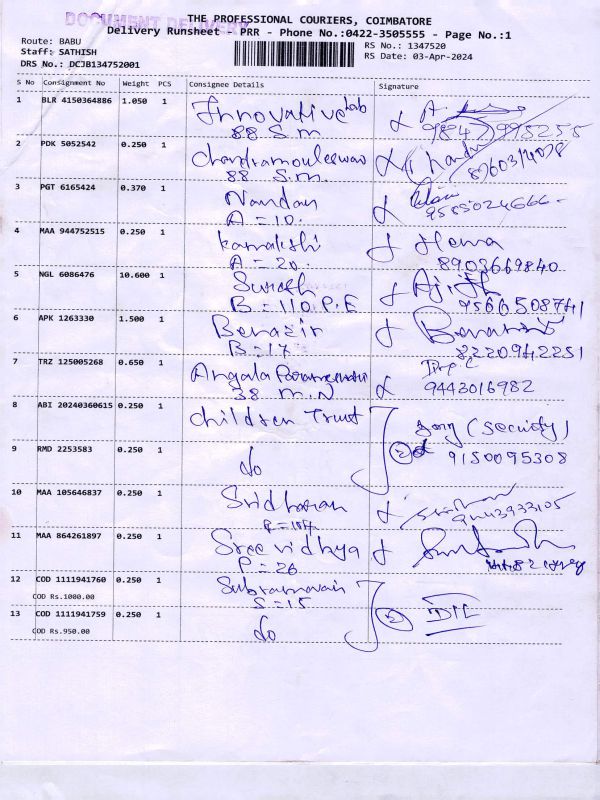 DOCUMENT DELIVERY
THE PROFESSIONAL COURIERS, COIMBATORE
Delivery Runsheet - PRR - Phone No.:0422-3505555 - Page No.:1
Route: BABU
Staff: SATHISH
DRS No.: DCJB134752001
RS No.: 1347520
RS Date: 03-Apr-2024
S No Consignment No Weight PCS Consignee Details Signature
1 BLR 4150364886 1.050 1 Innovative Lab
88 S.M
2 PDK 5052542 0.250 1 Chandramouleswar
88 S.M.
3 PGT 6165424 0.370 1 Nandan
A = 10. 9585024666
4 MAA 944752515 0.250 1 Kamakshi Hema
A = 20. 8903669840
5 NGL 6086476 10.600 1 Suresh Ajith
B = 110 P.E 9566508741
6 APK 1263330 1.500 1 Benazir
B = 17 8220942251
7 TRZ 125005268 0.650 1 Angala Parameswari
38 M.N 9443016982
8 ABI 20240360615 0.250 1 Children Trust (Security)
9 RMD 2253583 0.250 1 do 2 9150095308
10 MAA 105646837 0.250 1 Sridharan
11 MAA 864261897 0.250 1 Sree vidhya
P = 26
12 COD 1111941760 0.250 1 Subramaniam
COD Rs.1000.00 S = 15
13 COD 1111941759 0.250 1 do 2
COD Rs.950.00